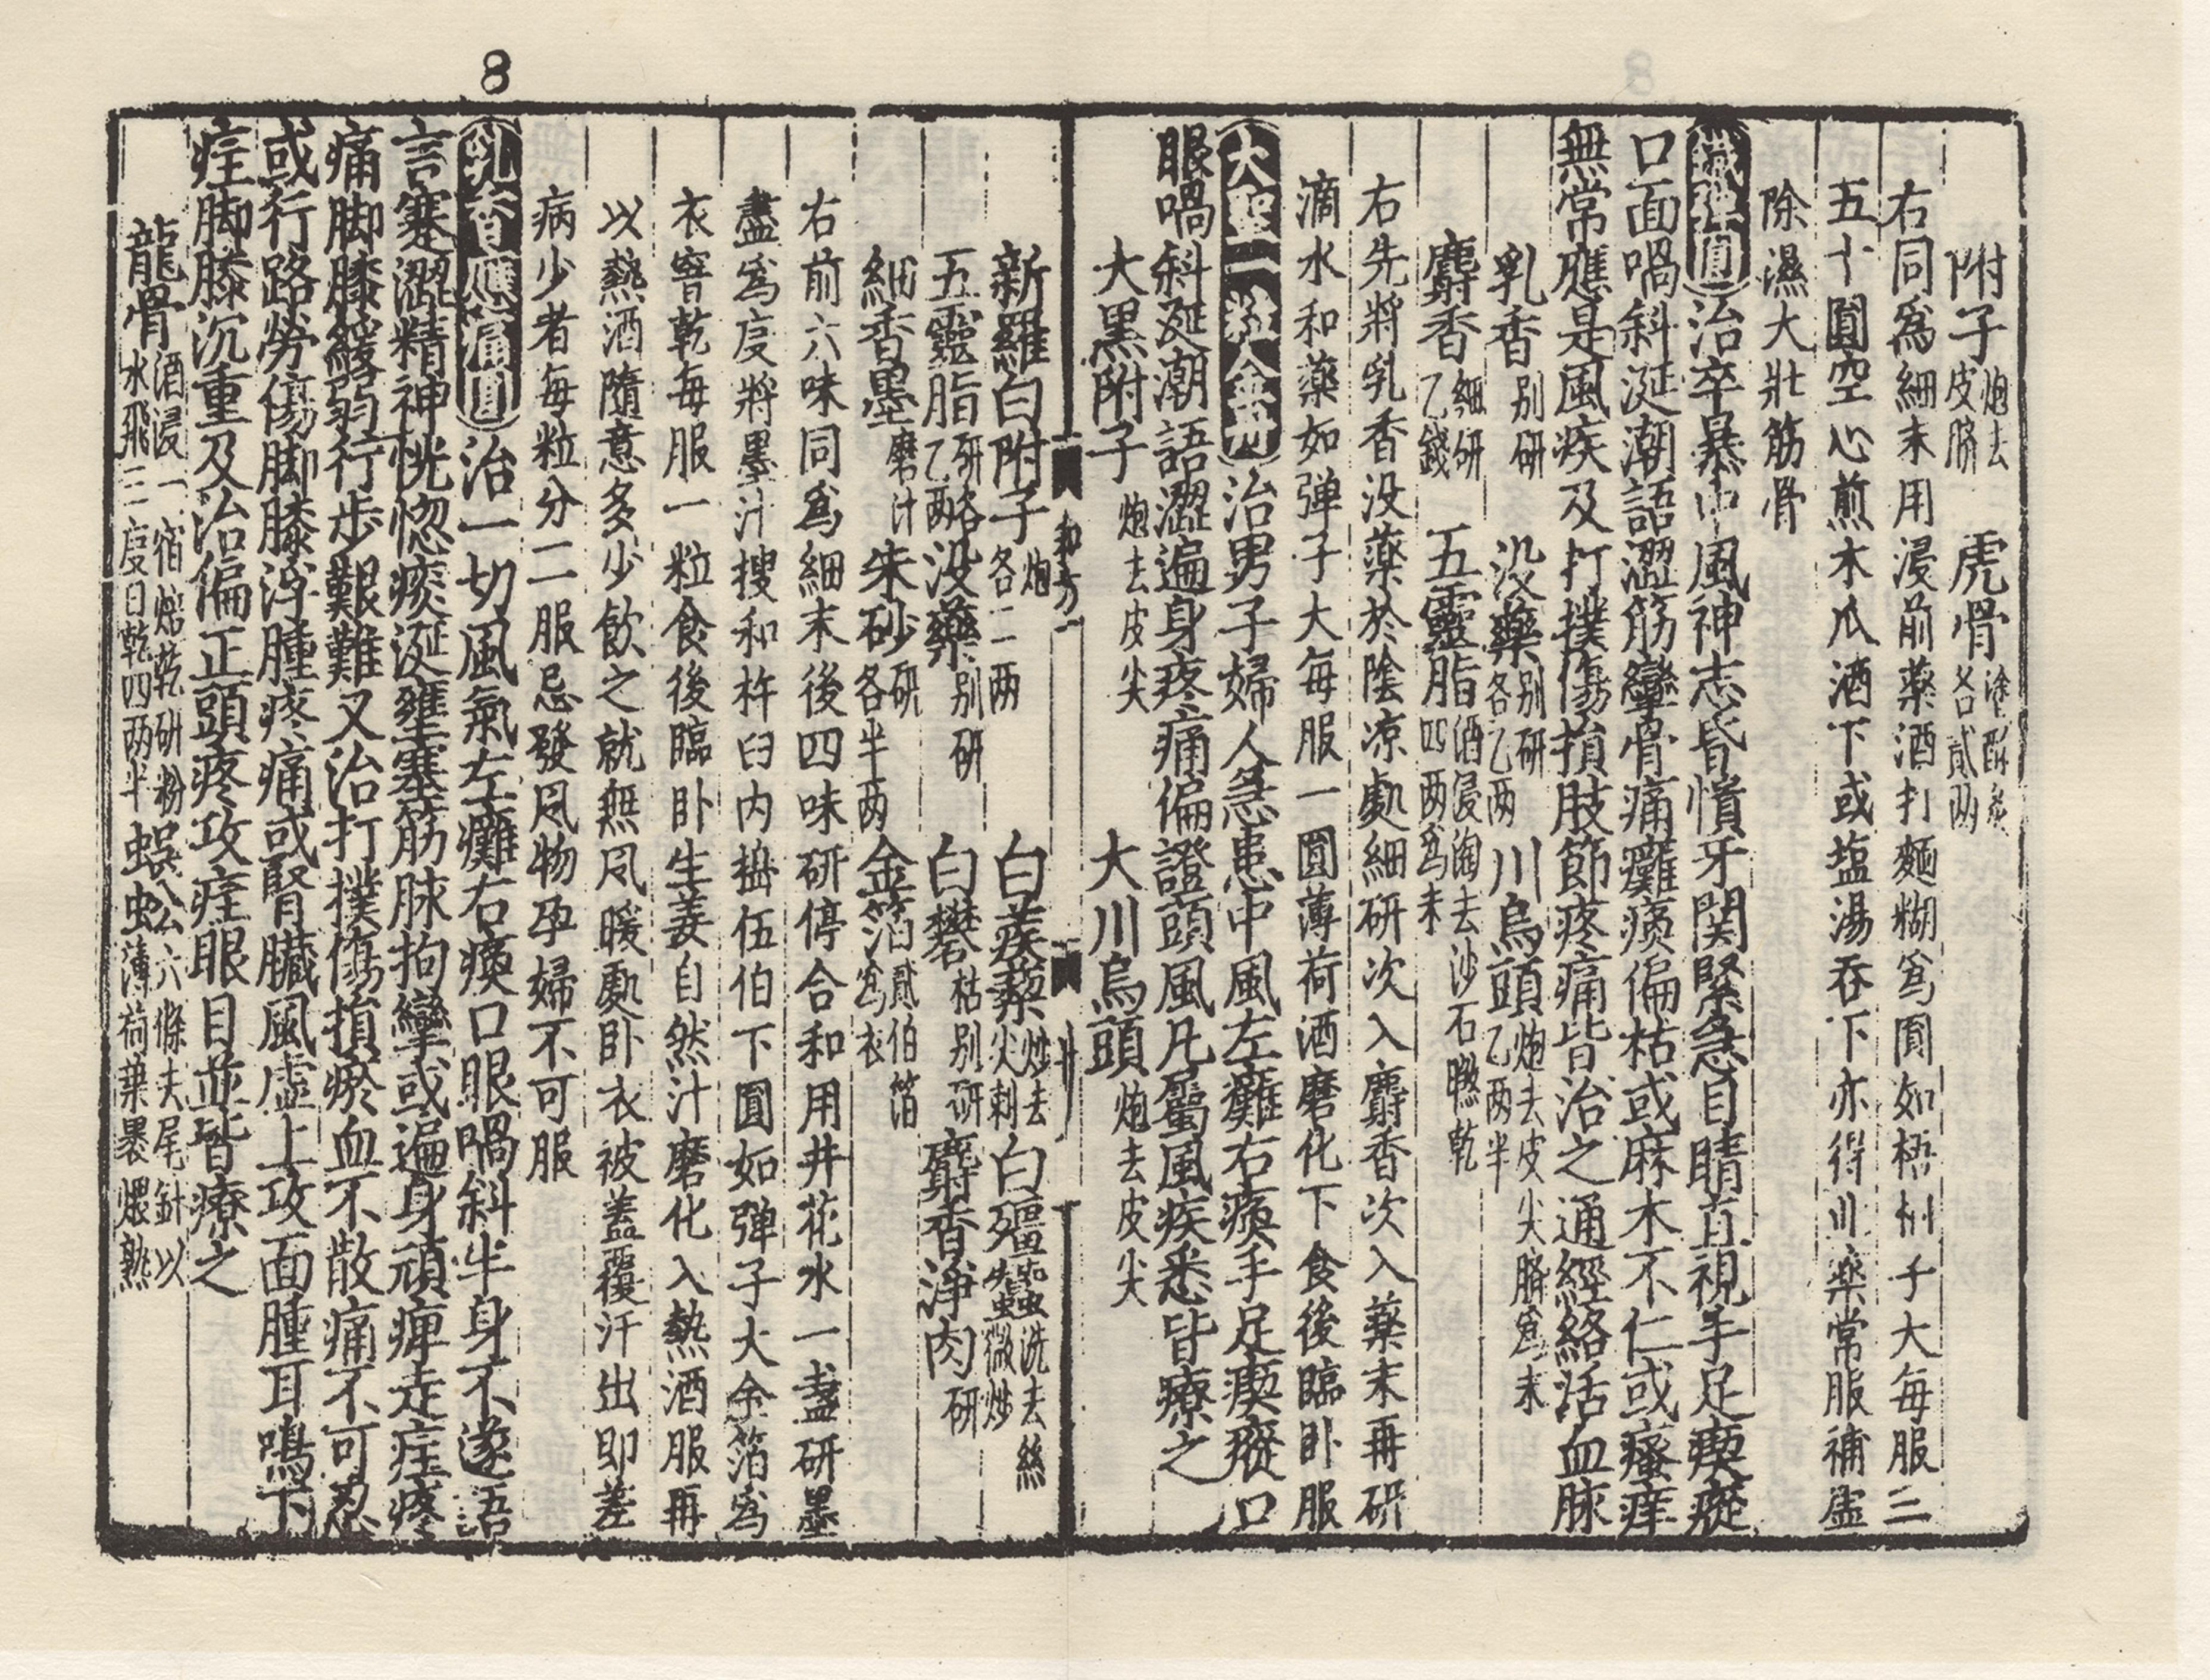 8
附子炮去皮臍 虎骨塗酥炙各貳兩
右同爲細末用浸前藥酒打麵糊爲圓如梧桐子大每服三
五十圓空心煎木瓜酒下或塩湯吞下亦得此藥常服補虚
除濕大壯筋骨
治卒暴中風神志昏憒牙関緊急目睛直視手足瘈瘲
口面喎斜涎潮語澀筋攣骨痛癱瘓偏枯或麻木不仁或瘙痒
無常應是風疾及打撲傷損肢節疼痛皆治之通經絡活血脉
乳香别研 没藥别研各乙两 川烏頭炮去皮尖臍爲末乙两半
麝香細研乙錢 五靈脂酒浸淘去沙石曬乾四两爲末
右先將乳香没藥於陰凉處細研次入麝香次入藥末再研
滴水和藥如弹子大每服一圓薄荷酒磨化下食後臨卧服
大聖一粒金丹治男子婦人急患中風左癱右瘓手足瘈瘲口
眼喎斜涎潮語澀遍身疼痛偏證頭風凡屬風疾悉皆療之
大黑附子炮去皮尖 大川烏頭炮去皮尖
和方一
新羅白附子炮各二两 白蒺藜炒去尖刺 白殭蠶洗去絲微炒
五靈脂研略乙两 没藥别研 白礬枯别研 麝香淨肉研
細香墨磨汁 朱砂研各半两 金箔貳伯箔爲衣
右前六味同爲細末後四味研停合和用井花水一盞研墨
盡爲度將墨汁搜和杵臼内搗伍伯下圓如弹子大金箔爲
衣窨乾每服一粒食後臨卧生姜自然汁磨化入熱酒服再
以熱酒隨意多少飲之就無風暖處卧衣被蓋覆汗出即差
病少者每粒分二服忌發風物孕婦不可服
乳香應痛圓治一切風氣左癱右瘓口眼喎斜半身不遂語
言蹇澀精神恍惚痰涎壅塞筋脉拘攣或遍身頑痺走疰疼
痛脚膝緩弱行步艱難又治打撲傷損瘀血不散痛不可忍
或行路勞傷脚膝浮腫疼痛或腎臟風虚上攻面腫耳鳴下
疰脚膝沉重及治偏正頭疼攻疰眼目並皆療之
龍骨酒浸一宿焙乾研粉水飛三度日乾四两半 蜈蚣六條去尾針以薄荷葉裹煨熟